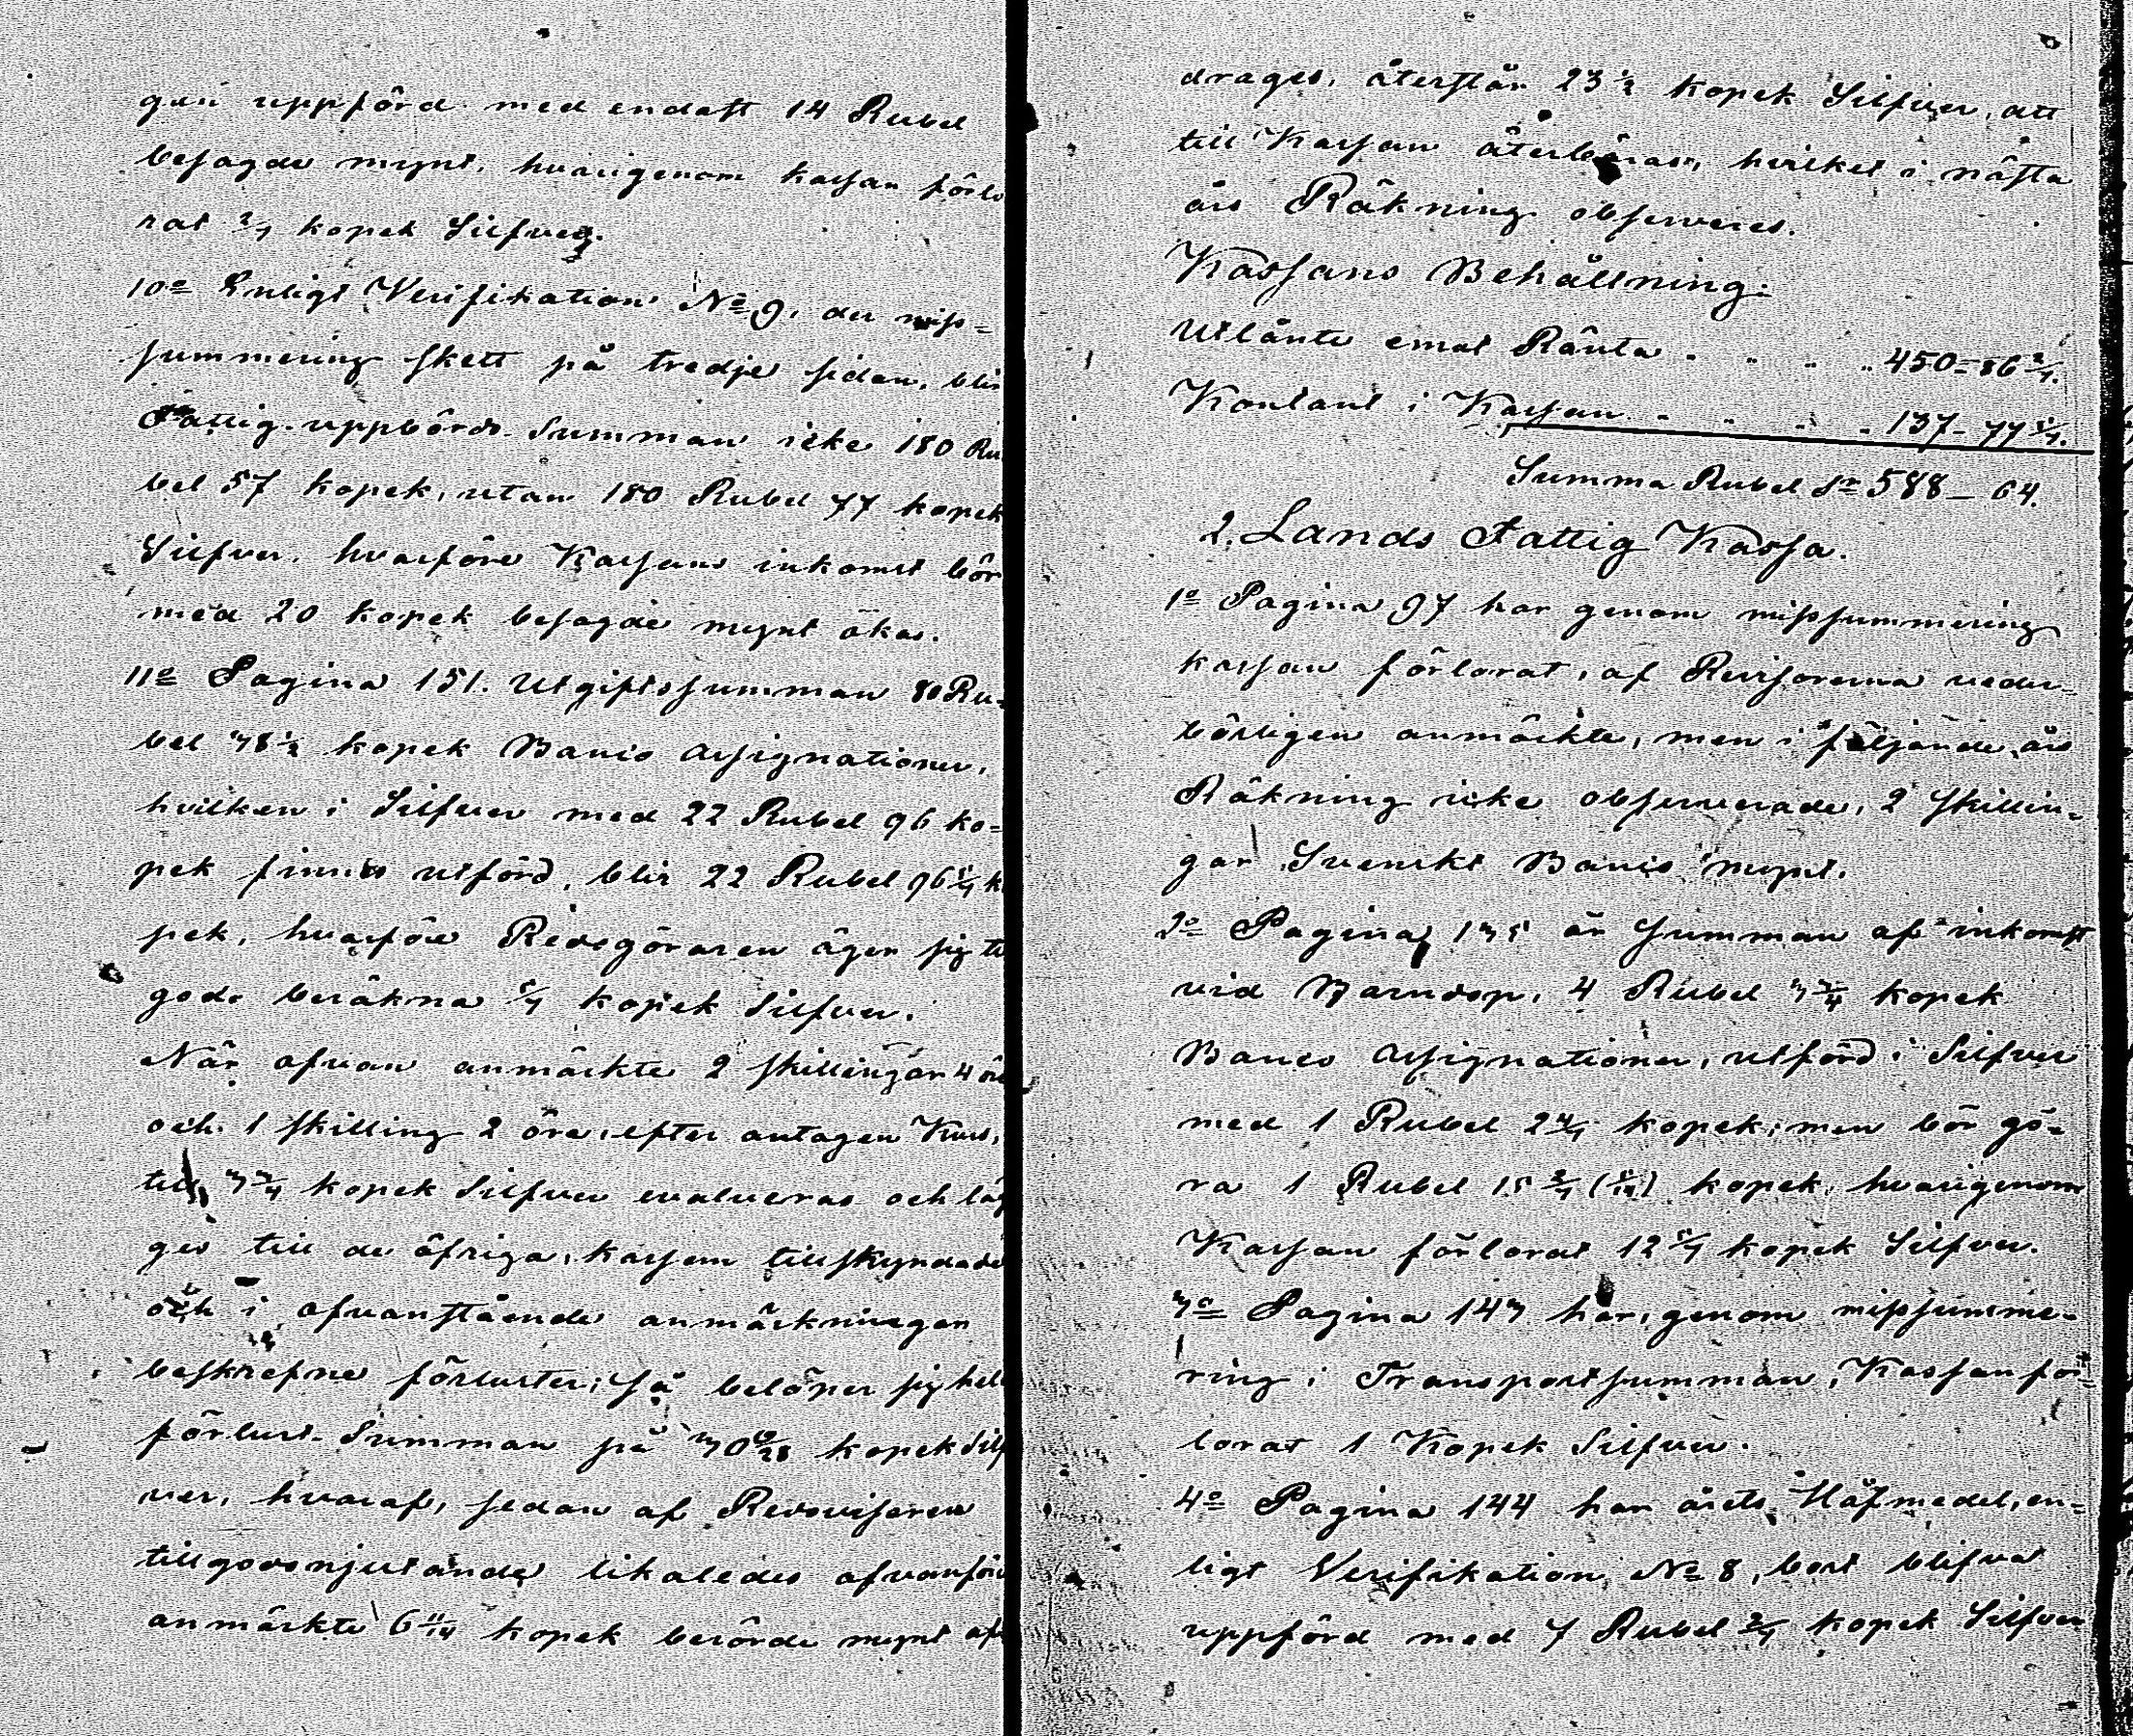 gan uppförd med endast 14 Rubel
besagde mynt, hvarigenom kassan förlo
rat 2/7 kopek Silfver.
10o Enligt Verifikation No 9, der miss-
summering skett på tredje sidan, blir
Fattig-uppbörds-Summan icke 180 Ru
bel 57 kopek, utan 180 Rubel 77 kopek
Silfver, hvarföre Kassans inkomst bör
med 20 kopek besagde mynt ökas.
11o Pagina 151. Utgiftssumman 80 Ru-
bel 38 1/2 kopek Banco Assignationer,
hvilken i Silfver med 22 Rubel 96 ko-
pek finnes utförd, blir 22 Rubel 96 5/7 k
pek, hvarföre Redogöraren äger sig til
godo beräkna 5/7 kopek Silfver.
När ofvan anmärkte 2 skillingar 4 öre
och 1 skilling 2 öre, efter antagen Kurs,
till 3 3/4 kopek Silfver evalveras och läg
ges till de öfriga, kassan tillskyndade
och i ofvanstående anmärkningar
beskrefne förluster; så belöper sig hela
förlust-Summan på 30 6/28 kopek Silf
ver, hvaraf, sedan af Redovisaren
tillgodonjutande likaledes ofvanföre
anmärkte 6 11/14 kopek berörde mynt af
drages, återstår 23 1/2 kopek Silfver, att
till Kassan återbäras, hvilket i nästa
års Räkning observeres.
Kassans Behållning:
Utlånte emot Ränta - " " " 450 - 86 2/7.
Kontant i Kassan - - - - 137 - 77 5/7.
Summa Rubel Sr 588 - 64.
2. Lands Fattig Kassa.
1o Pagina 97 har genom missummering
kassan förlorat, af Revisorerna veder-
börligen anmärkte, men i följande års
Räkning icke observerade, 2 skillin-
gar Svenskt Banco mynt.
2o Pagina 135 är Summan af inkomst
vid Barndop, 4 Rubel 3 3/4 kopek
Banco Assignationer, utförd i Silfver
med 1 Rubel 2 4/7 kopek; men bör gö-
ra 1 Rubel 15 2/7 (1/14) kopek, hvarigenom
Kassan förlorat 12 5/7 kopek Silfver.
3o Pagina 143 har, genom missumme-
ring i Transportsumman, Kassan för-
lorat 1 Kopek Silfver.
4o Pagina 144 har årets Håfmedel, en-
ligt Verifikation No 8, bort blifva
uppförd med 7 Rubel 2/7 kopek Silfver